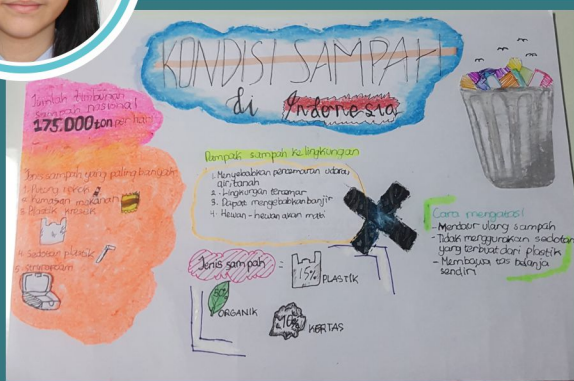 KONDISI SAMPAH
di Indonesia
Jumlah timbunan
sampah nasional
175.000 ton per hari
Jenis sampah yang paling banyak
1. Puntung rokok
2. Kemasan makanan
3. Plastik kresek
4. Sedotan plastik
5.
Dampak sampah ke lingkungan
1. Menyebabkan pencemaran udara,
air, tanah
2. Lingkungan tercemar
3. Dapat mengebabkan banjir
4. Hewan - hewan akan mati
Jenis sampah =
15% PLASTIK
50%
ORGANIK
10% KERTAS
Cara mengatasi
- Mendaur ulang sampah
- Tidak menggunakan sedotan
yang terbuat dari plastik
- Membawa tas belanja
sendiri